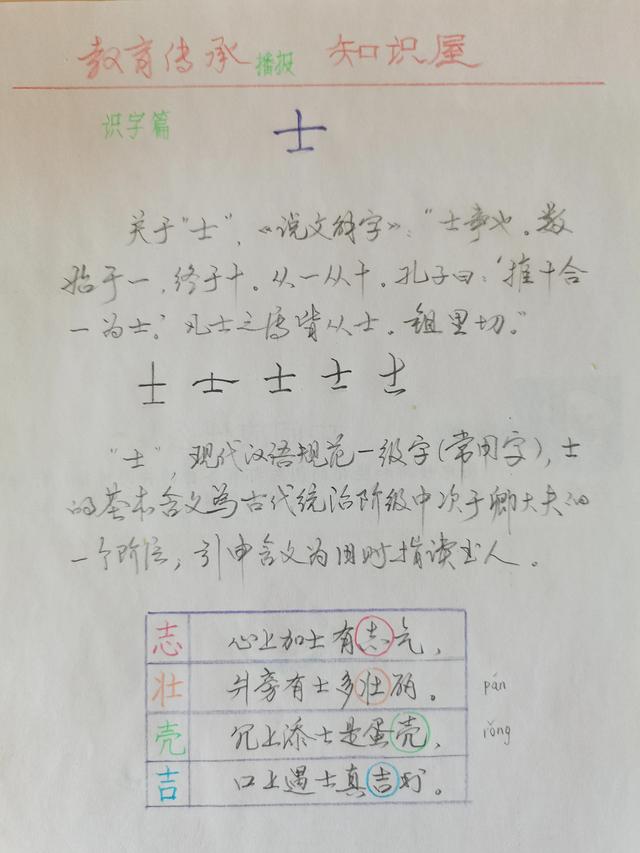 教育传承 播报 知识屋
识字篇 士
关于“士”,《说文解字》:“士事也。数
始于一,终于十。从一从十。孔子曰:‘推十合
一为士。’凡士之属皆从士。鉏里切。”
士 士 士 士 士
“士”,现代汉语规范一级字(常用字),士
的基本含义为古代统治阶级中次于卿大夫的
一个阶层,引申含义为旧时指读书人。
志 心上加士有志气,
壮 爿旁有士多壮丽。 pán
壳 冗上添士是蛋壳, rǒng
吉 口上遇士真吉利。